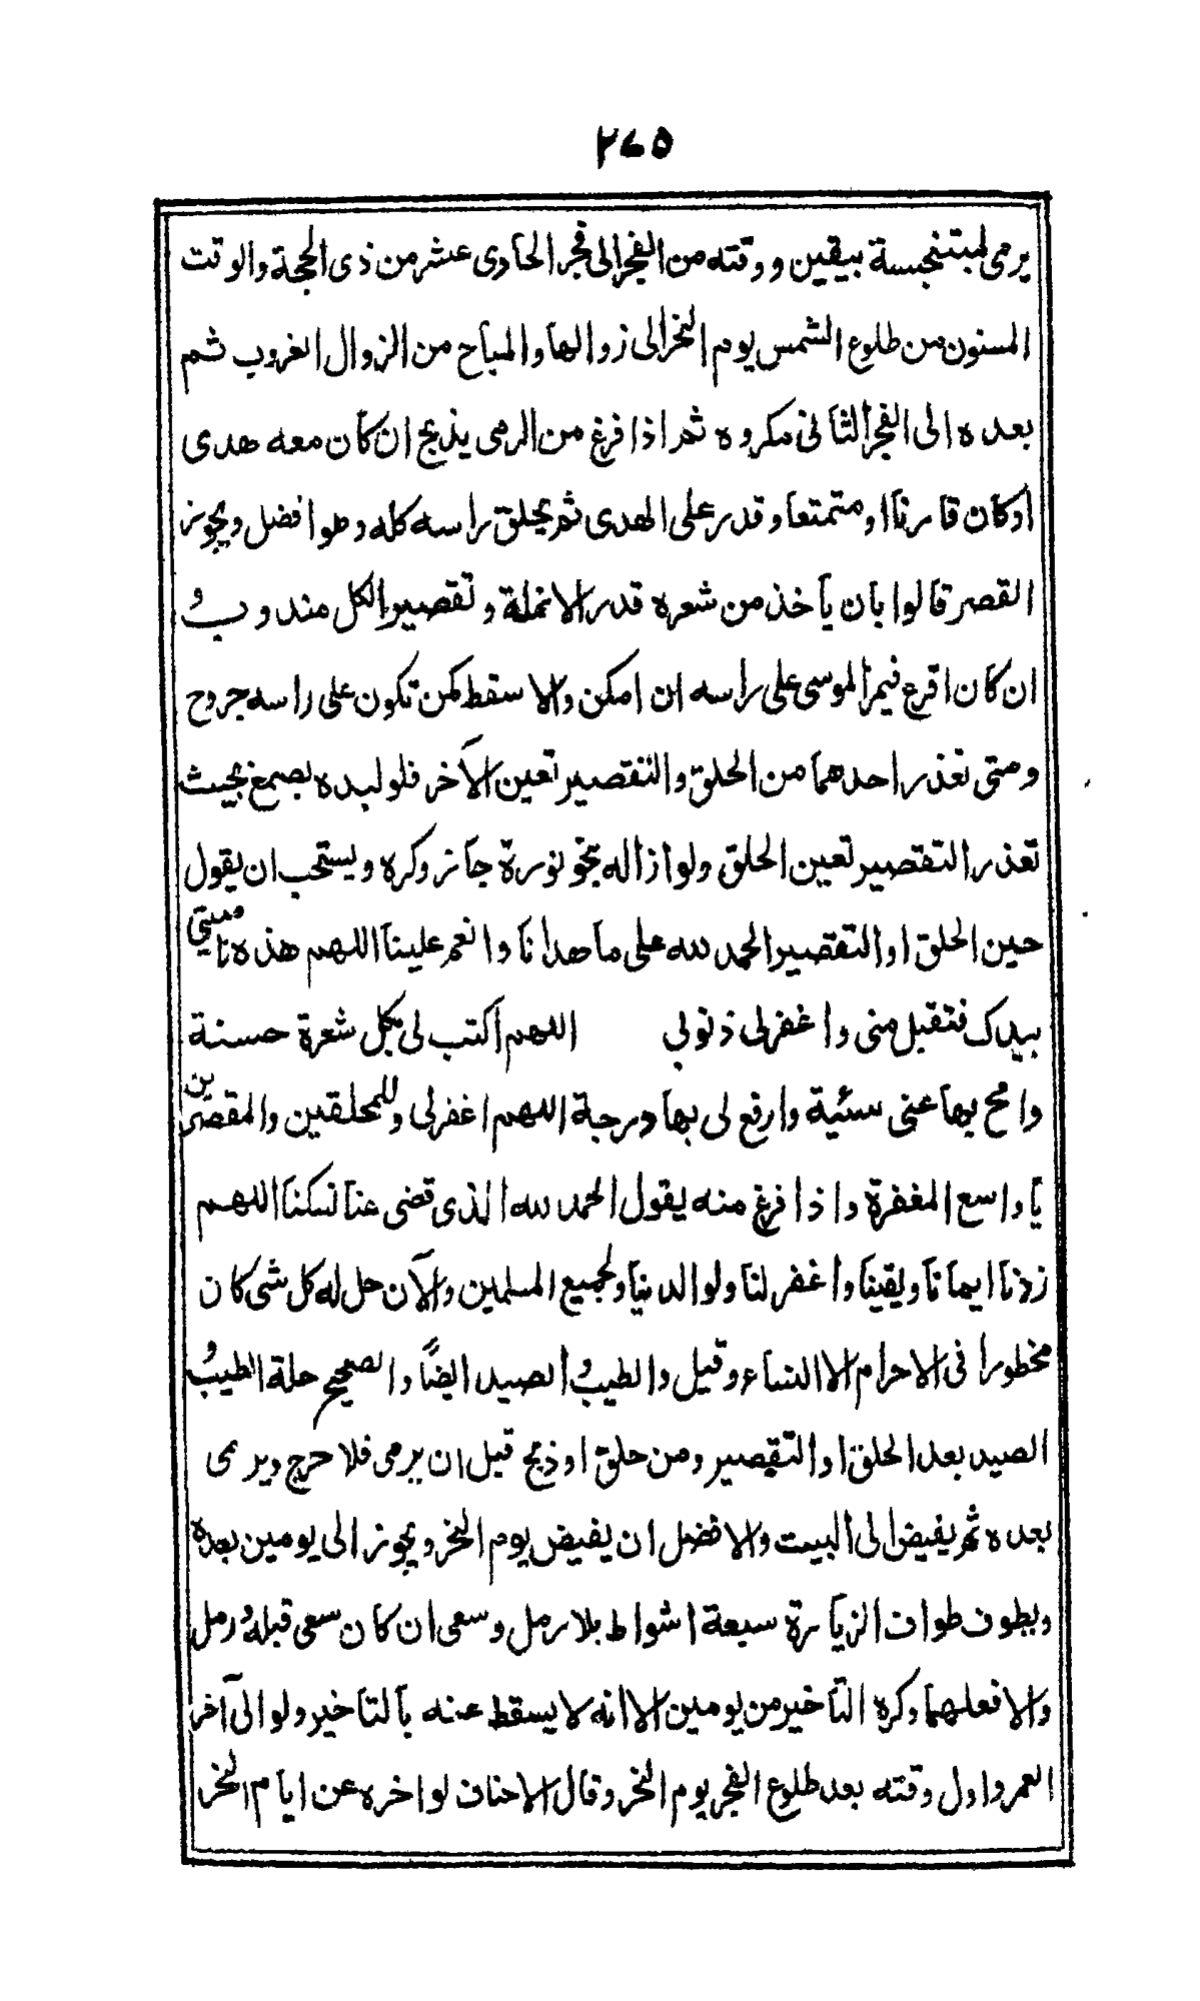 ٢٦٥
يرمى لمبتنجسة بيقين ووقته من الفجر الى فجر الحادى عشر من ذى الحجة والوقت
المسنون من طلوع الشمس يوم النحر الى زوالها والمباح من الزوال الغروب ثم
بعده الى الفجر الثانى مكروه ثم اذا فرغ من الرمى يذبح ان كان معه هدى
اوكان قارنا اومتمتعا وقدر على الهدى ثم يحلق راسه كله وهو افضل ويجوز
القصر قالوا بان ياخذ من شعره قدر الانملة وتقصير الكل مندوب و
ان كان اقرع فيمر الموسى على راسه ان امكن والا سقط كمن تكون على راسه جروح
ومتى تعذر احدهما من الحلق والتقصير تعين الآخر فلو لبده بصمغ بحيث
تعذر التقصير تعين الحلق ولو ازاله بنحو نورة جاز وكره ويستحب ان يقول
حين الحلق او التقصير الحمد لله على ما هدانا وانعم علينا اللهم هذه ناصيتى
بيدك فتقبل منى واغفرلى ذنوبي اللهم اكتب لى بكل شعرة حسنة
وامح بها عنى سيئة وارفع لى بها درجة اللهم اغفرلى وللمحلقين والمقصرين
يا واسع المغفرة واذا فرغ منه يقول الحمد لله الذى قضى عنا نسكنا اللهم
زدنا ايمانا ويقينا واغفر لنا ولوالدينا ولجميع المسلمين والآن حل له كل شى كان
محظورا فى الاحرام الا النساء وقيل والطيب و الصيد ايضاً والصحيح حلة الطيب و
الصيد بعد الحلق او التقصير ومن حلق اوذبح قبل ان يرمى فلا حرج ويرمى
بعده ثم يفيض الى البيت والافضل ان يفيض يوم النحر ويجوز الى يومين بعده
ويطوف طواف الزيارة سبعة اشواط بلا رمل وسعى ان كان سعى قبله و رمل
والا فعلهما وكره التاخير من يومين الا انه لا يسقط عنه بالتاخير ولو الى آخر
العمر واول وقته بعد طلوع الفجر يوم النحر وقال الاحناف لو اخره عن ايام النحر